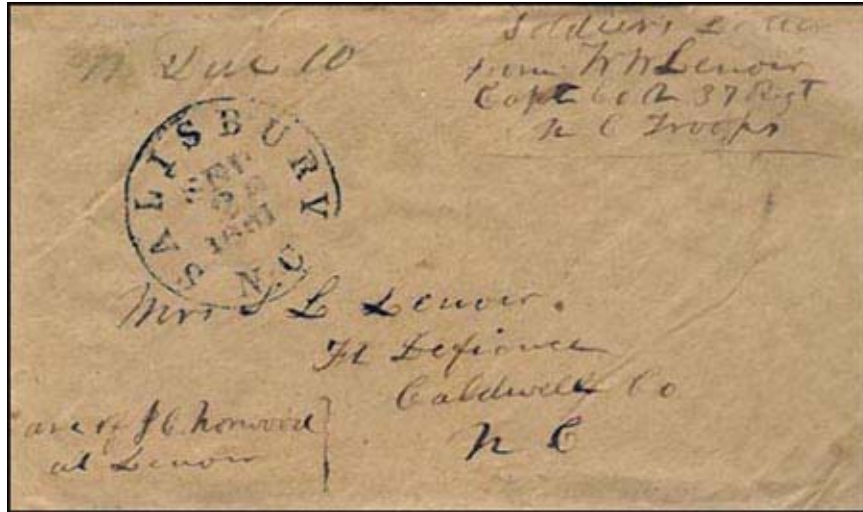 Due 10
Soldiers Letter
from W W Lenoir
Capt Co A 37 Regt
N C Troops
SALISBURY N.C.
1861
Mrs S L Lenoir.
Ft Defiance
Caldwell Co
N C
care of J C Norwood
at Lenoir